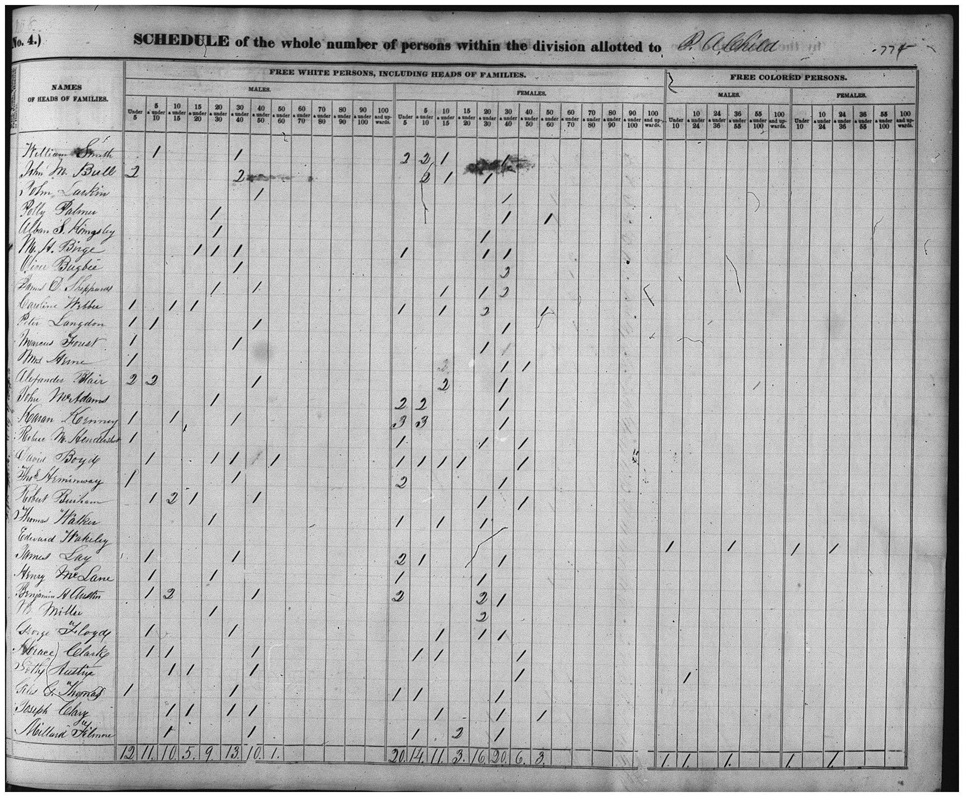 No. 4.)
SCHEDULE of the whole number of persons within the division allotted to
FREE WHITE PERSONS, INCLUDING HEADS OF FAMILIES. FREE COLORED PERSONS.
NAMES OF HEADS OF FAMILIES. MALES. FEMALES. MALES. FEMALES.
Under 5 5 & under 10 10 & under 15 15 & under 20 20 & under 30 30 & under 40 40 & under 50 50 & under 60 60 & under 70 70 & under 80 80 & under 90 90 & under 100 100 and upwards. Under 5 5 & under 10 10 & under 15 15 & under 20 20 & under 30 30 & under 40 40 & under 50 50 & under 60 60 & under 70 70 & under 80 80 & under 90 90 & under 100 100 and upwards. Under 10 10 & under 24 24 & under 36 36 & under 55 55 & under 100 100 and upwards. Under 10 10 & under 24 24 & under 36 36 & under 55 55 & under 100 100 and upwards.
William Smith 1 1 2 2 1 1
John M Bull 2 2 2 1 1
John Larkin 1 1
Polly Palmer 1 1 1
Alban S. Kingsley 1 1
M. H. Birge 1 1 1 1 1 1
Bugbee 1 2
D. Sheppard 1 1 1 1 2
Caroline Webber 1 1 1 1 1 2 1
Peter Langdon 1 1 1 1
Marcus Forest 1 1 1
1 1 1
Alexander Blair 2 2 1 2 1
John McAdams 1 2 2 1
Kenney 1 1 1 3 3 1
M. 1 1 1 1
David Boyd 1 1 1 1 1 1 1 1 1
Thos Heminway 1 1 2 1
Robert 1 2 1 1 1 1
Thomas Walker 1 1 1 1
Edward Wakeley 1 1 1 1
Lay 1 1 2 1 1
Henry McLane 1 1 1 1
Benjamin H Austin 1 2 1 2 2 1
Miller 1 2
George Floyd 1 1 1 1 1
Horace Clark 1 1 1 1 1 1
Austin 1 1 1 1 1
G. Thomas 1 1 1 1 1
Joseph Clary 1 1 1 1 1 1 1
Millard Filmore 1 1 1 2 1
12 11 10 5 9 13 10 1 20 14 11 3 16 20 6 3 1 1 1 1 1